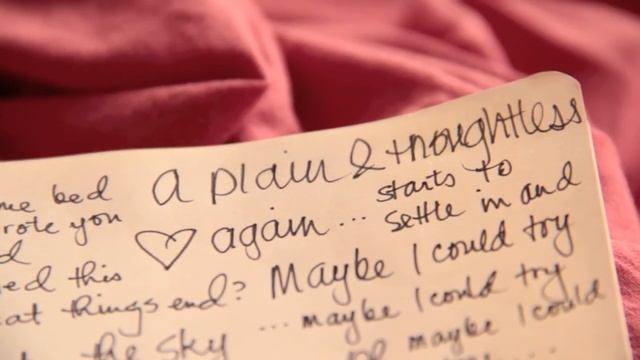 me bed
rote you
d
ed this
at things end?
the sky
a plain & thoughtless
♡ again... starts to
settle in and
Maybe I could try
... maybe I could try
maybe I could